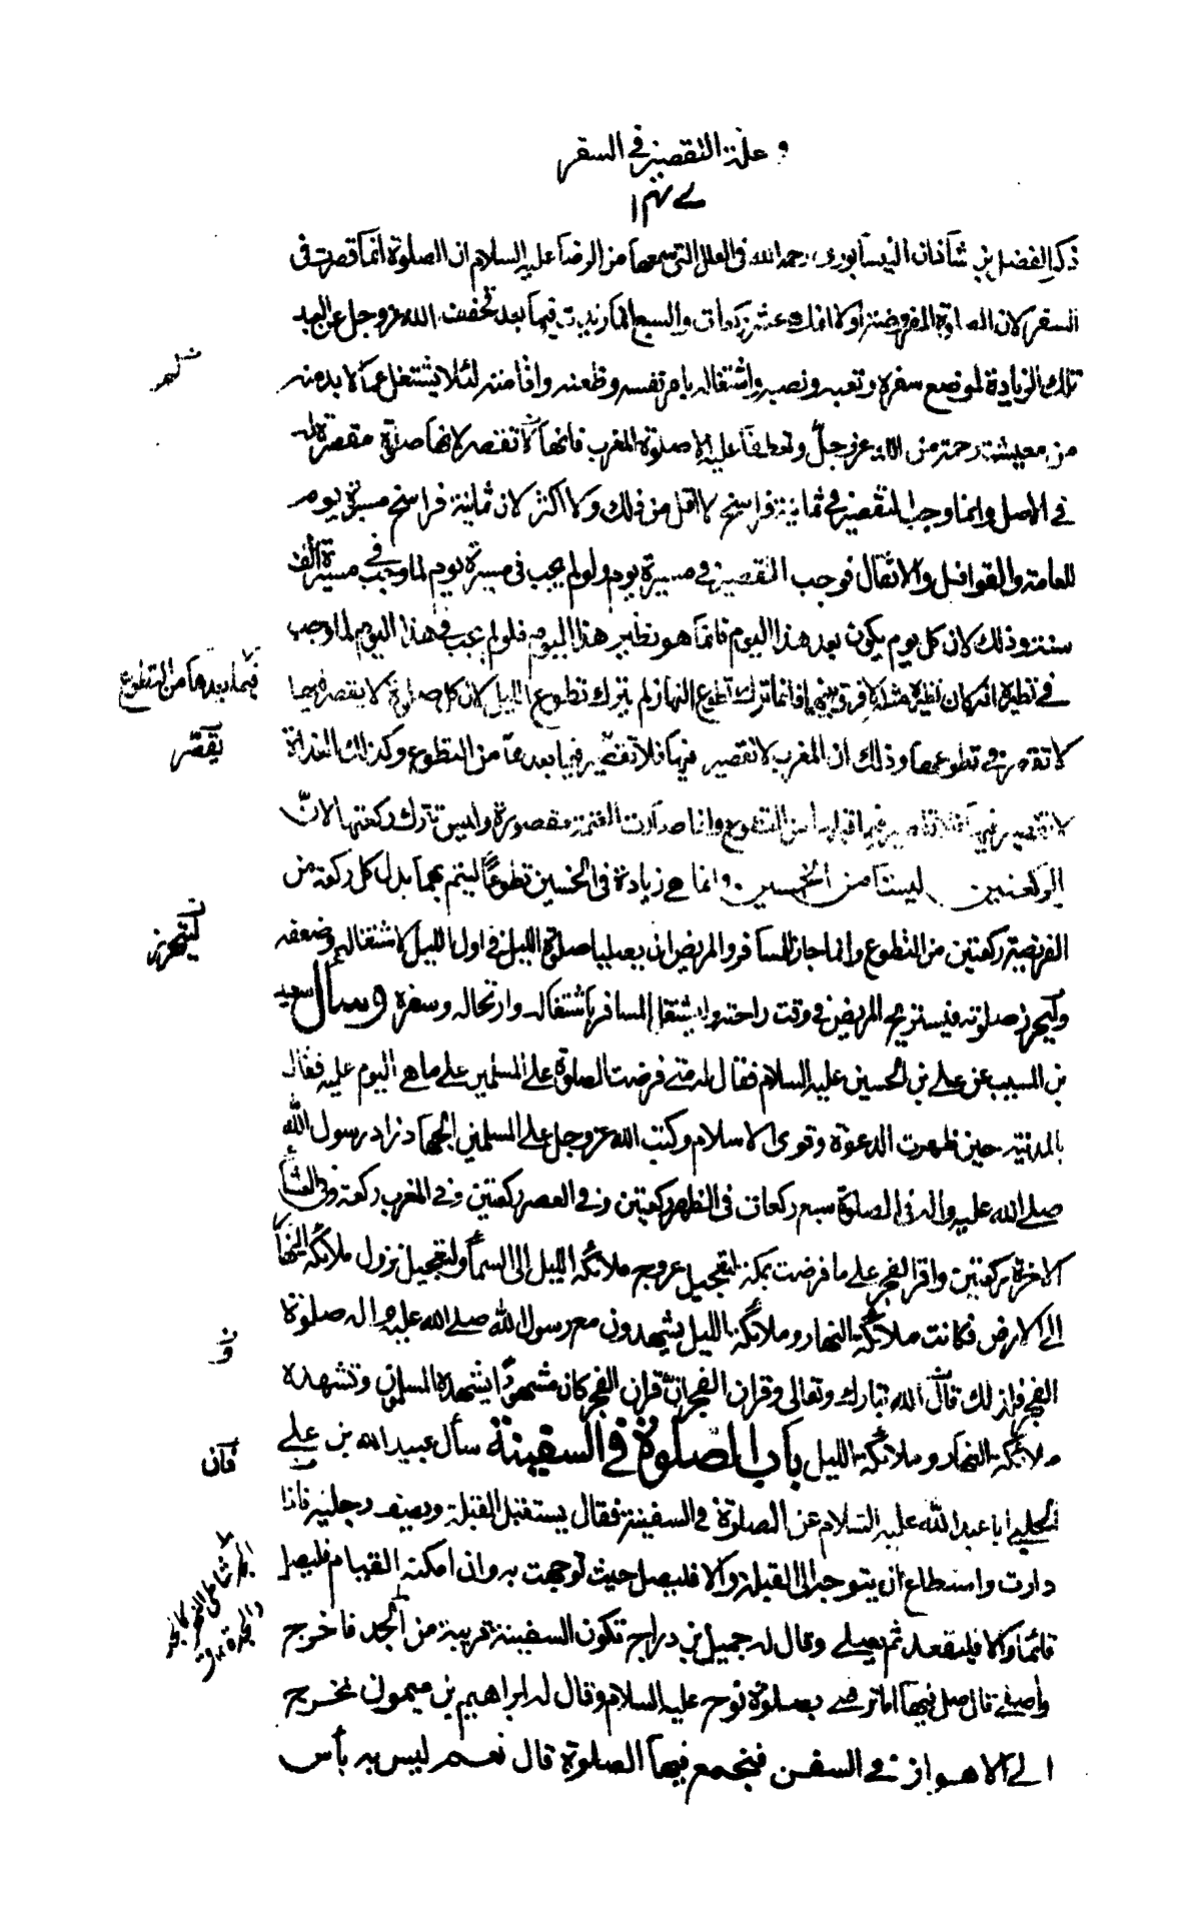 و علة التقصير في السفر
ذكر الفضل بن شاذان النيسابوري رحمه الله في العلل التي سمعها من الرضا عليه السلام ان الصلوة انما قصرت في
السفر لان الصلوة المفروضة اولا انما هي عشر ركعات والسبع انما زيدت فيها بعد فخفف الله عز وجل عن العبد
تلك الزيادة لموضع سفره وتعبه ونصبه واشتغاله بامر نفسه وظعنه واقامته لئلا يشتغل عما لا بد منه
من معيشته رحمة من الله عز وجل وتعطفا عليه الا صلوة المغرب فانها لا تقصر لانها صلوة مقصرة
في الاصل وانما وجب التقصير في ثمانية فراسخ لا اقل من ذلك ولا اكثر لان ثمانية فراسخ مسيرة يوم
للعامة والقوافل والاثقال فوجب التقصير في مسيرة يوم ولو لم يجب في مسيرة يوم لما وجب في مسيرة الف
سنة وذلك لان كل يوم يكون بعد هذا اليوم فانما هو نظير هذا اليوم فلو لم يجب في هذا اليوم لما وجب
في نظيره اذ كان نظيره مثله لا فرق بينهما وانما ترك تطوع النهار ولم يترك تطوع الليل لان كل صلوة لا يقصر فيها
لا تقصر في تطوعها وذلك ان المغرب لا تقصير فيها فلا تقصير فيما بعدها من التطوع وكذلك الغداة
لا تقصير فيها فلا تقصير فيما قبلها من التطوع وانما صارت العتمة مقصورة وليس تترك ركعتيها لان
الركعتين ليستا من الخمسين وانما هي زيادة في الخمسين تطوعا ليتم بهما بدل كل ركعة من
الفريضة ركعتين من التطوع وانما جاز للمسافر والمريض ان يصليا صلوة الليل في اول الليل لاشتغاله وضعفه
وليحرز صلوته فيستريح المريض في وقت راحته وليشتغل المسافر باشتغاله وارتحاله وسفره وسأل سعيد
بن المسيب عن علي بن الحسين عليه السلام فقال له متى فرضت الصلوة على المسلمين على ما هي اليوم عليه فقال
بالمدينة حين ظهرت الدعوة وقوى الاسلام وكتب الله عز وجل على المسلمين الجهاد زاد رسول الله
صلى الله عليه واله في الصلوة سبع ركعات في الظهر ركعتين وفي العصر ركعتين وفي المغرب ركعة وفي العشاء
الاخرة ركعتين واقر الفجر على ما فرضت بمكة لتعجيل عروج ملائكة الليل الى السماء ولتعجيل نزول ملائكة النهار
الى الارض فكانت ملائكة النهار وملائكة الليل يشهدون مع رسول الله صلى الله عليه واله صلوة
الفجر فلذلك قال الله تبارك وتعالى وقران الفجر ان قران الفجر كان مشهودا يشهده المسلمون وتشهده
ملائكة النهار وملائكة الليل باب الصلوة في السفينة سأل عبيد الله بن علي
الحلبي ابا عبد الله عليه السلام عن الصلوة في السفينة فقال يستقبل القبلة ويصف رجليه فاذا
دارت واستطاع ان يتوجه الى القبلة والا فليصل حيث توجهت به وان امكنه القيام فليصل
قائما والا فليقعد ثم يصلي وقال له جميل بن دراج تكون السفينة قريبة من الجد فاخرج
واصلي قال صل فيها اما ترضى بصلوة نوح عليه السلام وقال له ابراهيم بن ميمون نخرج
الى الاهواز في السفن فنجمع فيها الصلوة قال نعم ليس به بأس
فيما بعدها من التطوع
يقصر
ليحرز
فان